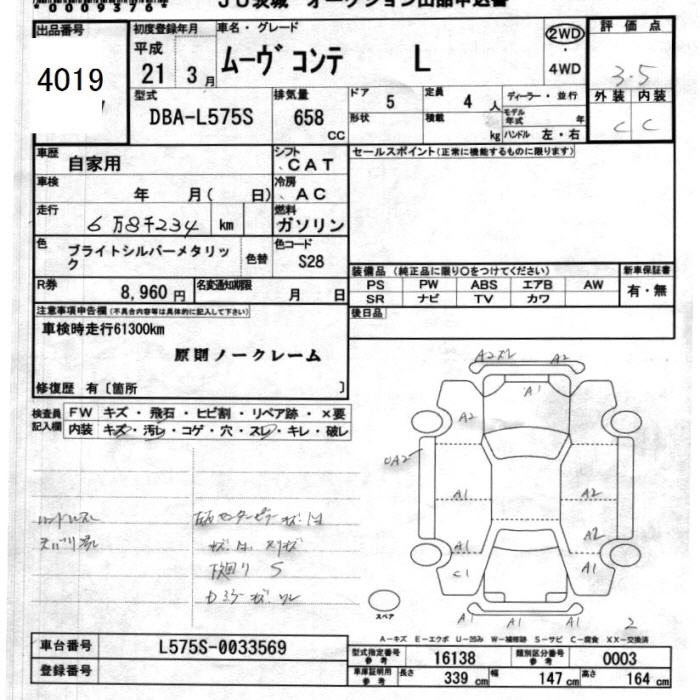 JU茨城 オークション出品申込書
出品番号
4019
初度登録年月
平成
21 3月
車名・グレード
ムーヴコンテ L
2WD
・
4WD
評価点
3.5
外装 内装
C C
型式
DBA-L575S
排気量
658
CC
ドア 5
定員 4 人
形状
積載 kg
ディーラー・並行
モデル年式 年
ハンドル 左・右
車歴
自家用
シフト
CAT
セールスポイント(正常に機能するものに限ります)
車検
年 月( 日)
冷房
AC
走行
6万8千234 km
燃料
ガソリン
色
ブライトシルバーメタリック
色替
色コード
S28
R券
8,960円
名変通知期限
月 日
装備品 (純正品に限り○をつけてください)
PS PW ABS エアB AW
SR ナビ TV カワ
新車保証書
有・無
後日品
注意事項申告欄(不具合内容等は具体的に記入して下さい)
車検時走行61300km
原則ノークレーム
修復歴 有〔箇所 〕
検査員記入欄
FW キズ・飛石・ヒビ割・リペア跡・×要
内装 キズ・汚レ・コゲ・穴・スレ・キレ・破レ
A2 A2
A1
A2
UA2
A1 A2
A1 A2
C1 A1
A1 A1 A1
下回り S
スペア
2
A-キズ E-エクボ U-凹み W-補修跡 S-サビ C-腐食 XX-交換済
車台番号
L575S-0033569
登録番号
型式指定番号
参考
16138
類別区分番号
参考
0003
車庫証明用
参考
長さ 339 cm
幅 147 cm
高さ 164 cm